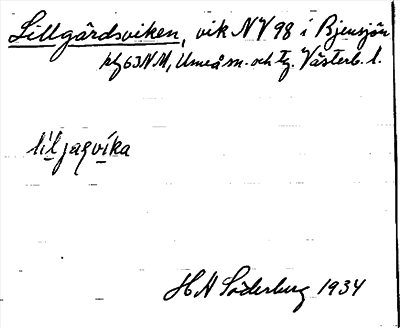 Lillgårdsviken, vik NV 98 i Bjensjön
klf 63 NM, Umeå sn. och tg. Västerb. l.
liljaqvika
H A Söderberg 1934